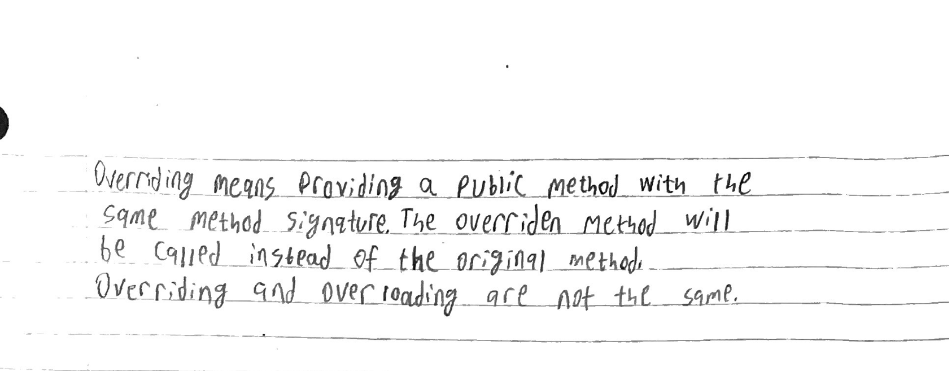 Overriding means providing a public method with the
same method signature. The overriden method will
be called instead of the original method.
Overriding and overloading are not the same.